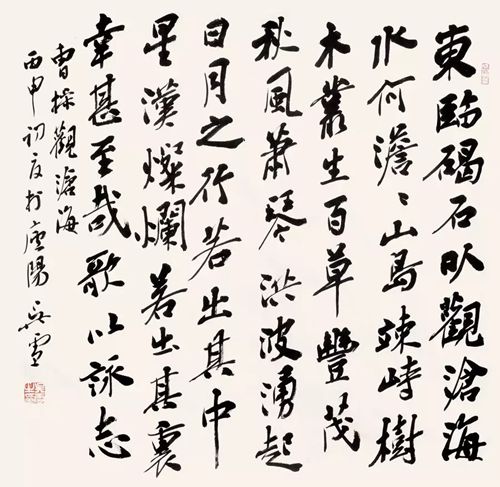 東臨碣石以觀滄海
水何澹〻山島竦峙樹
木叢生百草豐茂
秋風蕭瑟洪波湧起
日月之行若出其中
星漢燦爛若出其裏
幸甚至哉歌以詠志
曹操觀滄海
丙申初夏於廬陽 吳雪